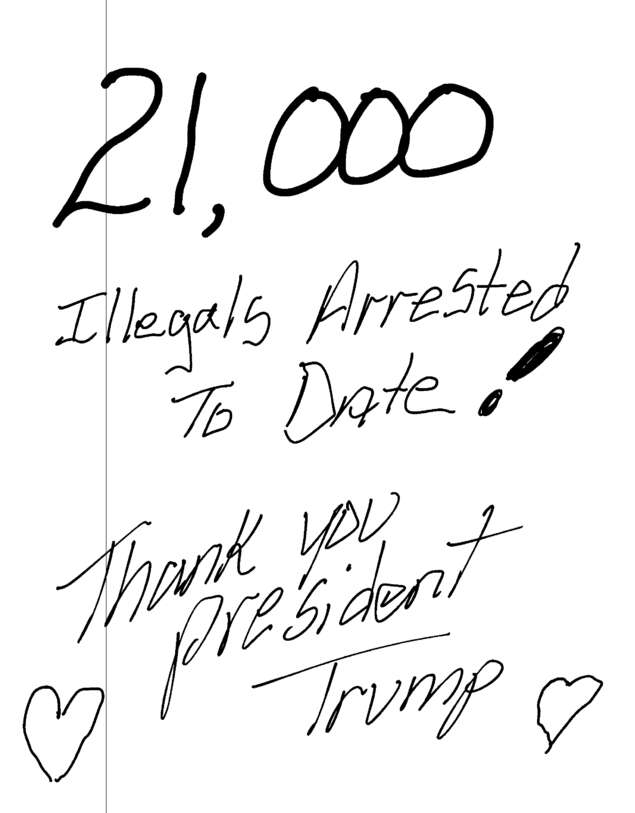 21,000
Illegals Arrested
To Date!
Thank you
president
Trump